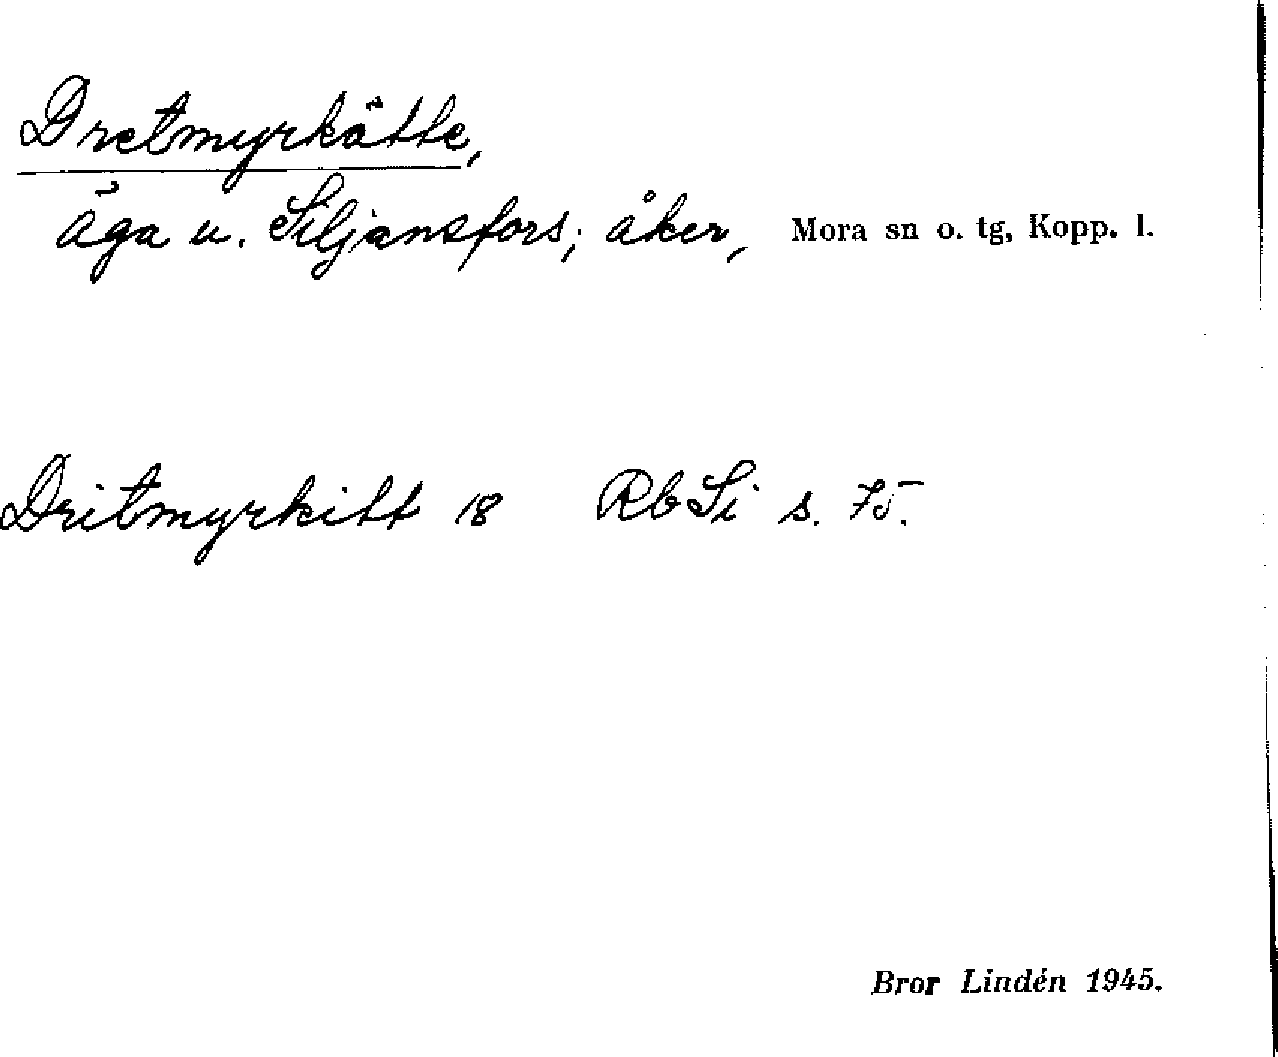 Dretmyrkätte,
äga u. Siljansfors; åker, Mora sn o. tg, Kopp. l.
Dritmyrkitt 18 Rb Si s. 75.
Bror Lindén 1945.